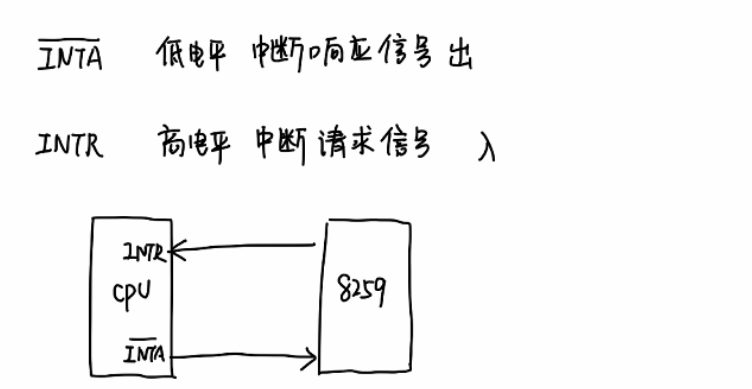 I̅N̅T̅A̅ 低电平 中断响应信号 出
INTR 高电平 中断请求信号 入
INTR
CPU
8259
I̅N̅T̅A̅